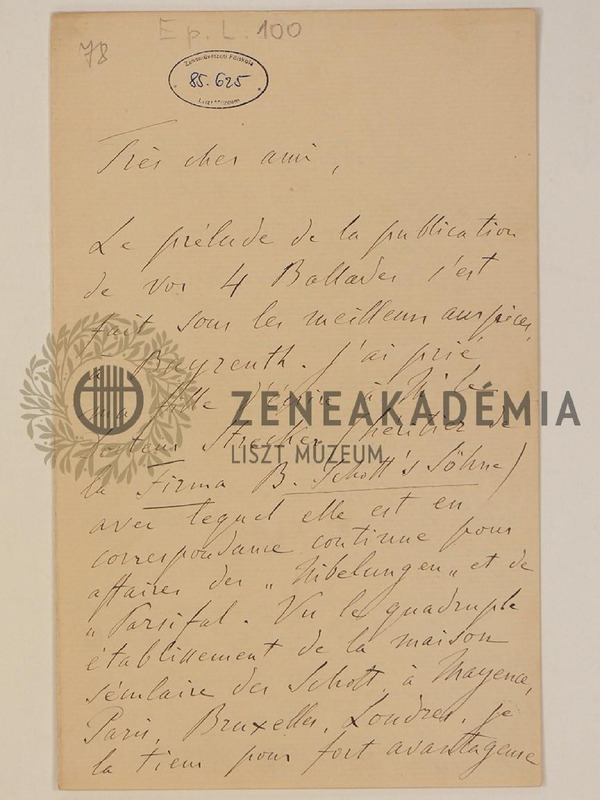 Ep. L. 100
78
Zeneművészeti Főiskola
85.625
Liszt Múzeum
Très cher ami,
Le prélude de la publication
de vos 4 Ballades s'est
fait sous les meilleurs auspices,
à Bayreuth. J'ai prié
ma fille d'écrire à Mr le
Docteur Strecker (héritier de
la Firma B. Schott's Söhne)
avec lequel elle est en
correspondance continue pour
affaires des „Nibelungen" et de
„Parsifal. Vu le quadruple
établissement de la maison
séculaire des Schott, à Mayence,
Paris, Bruxelles, Londres, je
la tiens pour fort avantageuse
ZENEAKADÉMIA
LISZT MÚZEUM